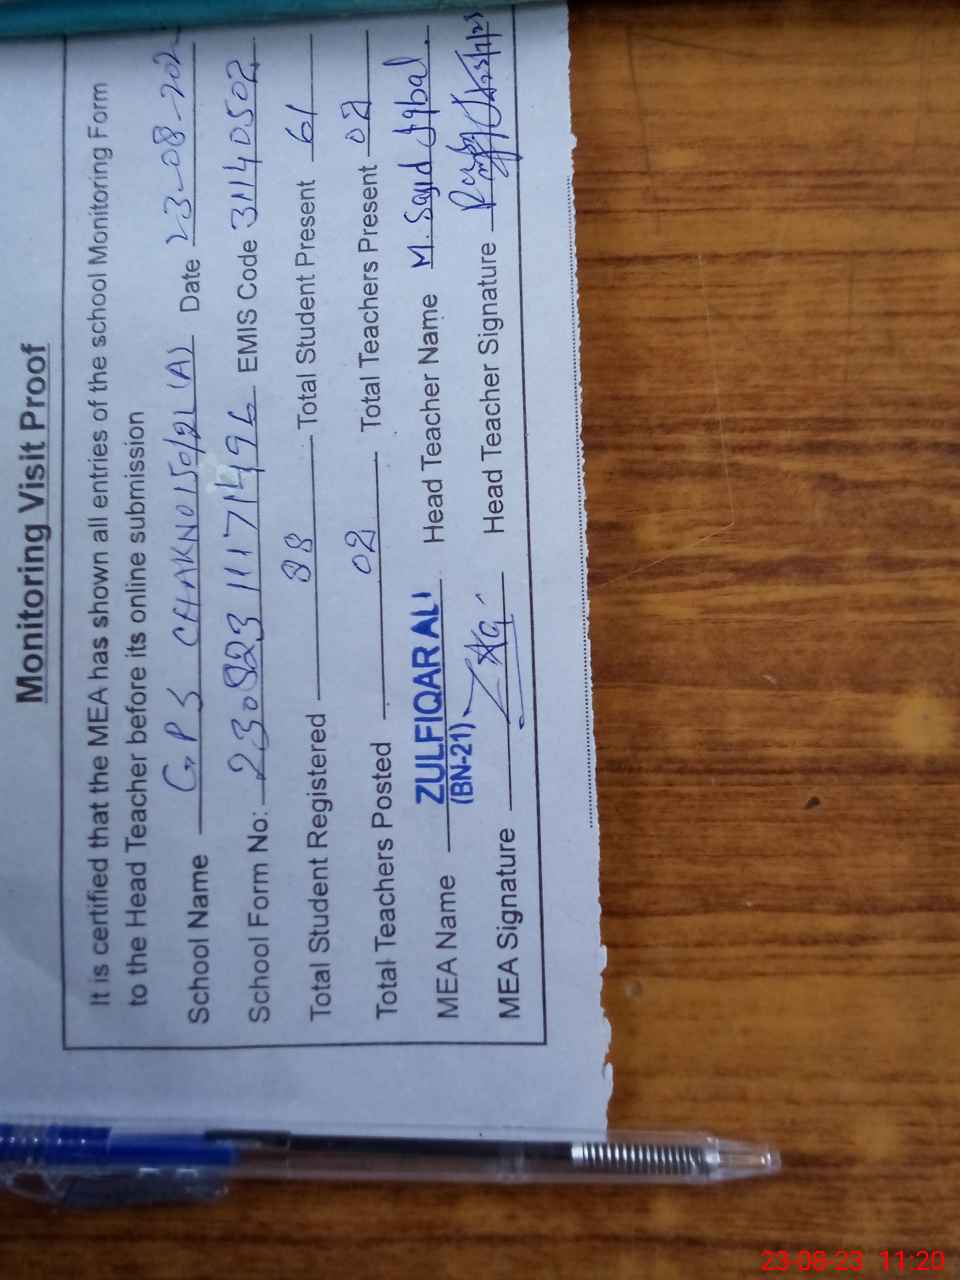 Monitoring Visit Proof
It is certified that the MEA has shown all entries of the school Monitoring Form
to the Head Teacher before its online submission
School Name GPS CHAKNO 150/2L (A) Date 23-08-202
School Form No: 230823 1117149 EMIS Code 31140502
Total Student Registered 88 Total Student Present 61
Total Teachers Posted 02 Total Teachers Present 02
MEA Name ZULFIQAR ALI Head Teacher Name M. Sajid Iqbal
(BN-21)
MEA Signature Head Teacher Signature
23-08-23 11:20